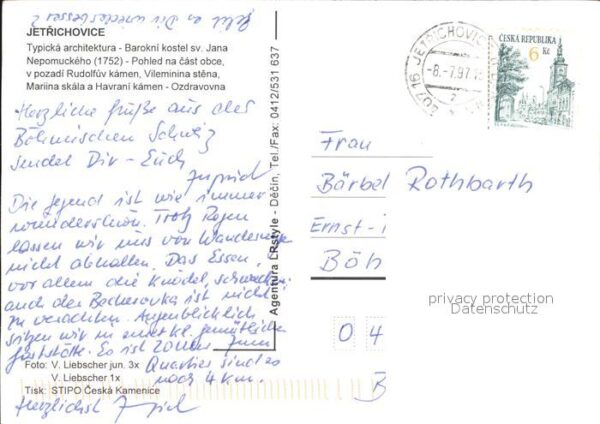 JETŘICHOVICE
Typická architektura - Barokní kostel sv. Jana
Nepomuckého (1752) - Pohled na část obce,
v pozadí Rudolfův kámen, Vileminina stěna,
Mariina skála a Havraní kámen - Ozdravovna
Herzliche Grüße aus der
Böhmischen Schweiz
sendet Dir - Euch
Die Gegend ist wie immer
wunderschön. Trotz Regen
lassen wir uns vom Wandern
nicht abhalten. Das Essen,
vor allem die Knödel,
und der Becherovka ist nicht
zu verachten. Augenblicklich
sitzen wir in gemütlicher
Gaststätte. Es ist 20 Uhr zum
Quartier sind es
noch 4 km.
Herzlichst
Foto: V. Liebscher jun. 3x
V. Liebscher 1x
Tisk: STIPO Česká Kamenice
Agentura LRstyle - Děčín, Tel./Fax: 0412/531 637
407 16 JETŘICHOVICE
-8.-7.97
ČESKÁ REPUBLIKA
6 Kč
Frau
Bärbel Rothbarth
Ernst-
Böh
privacy protection
Datenschutz
0 4
B